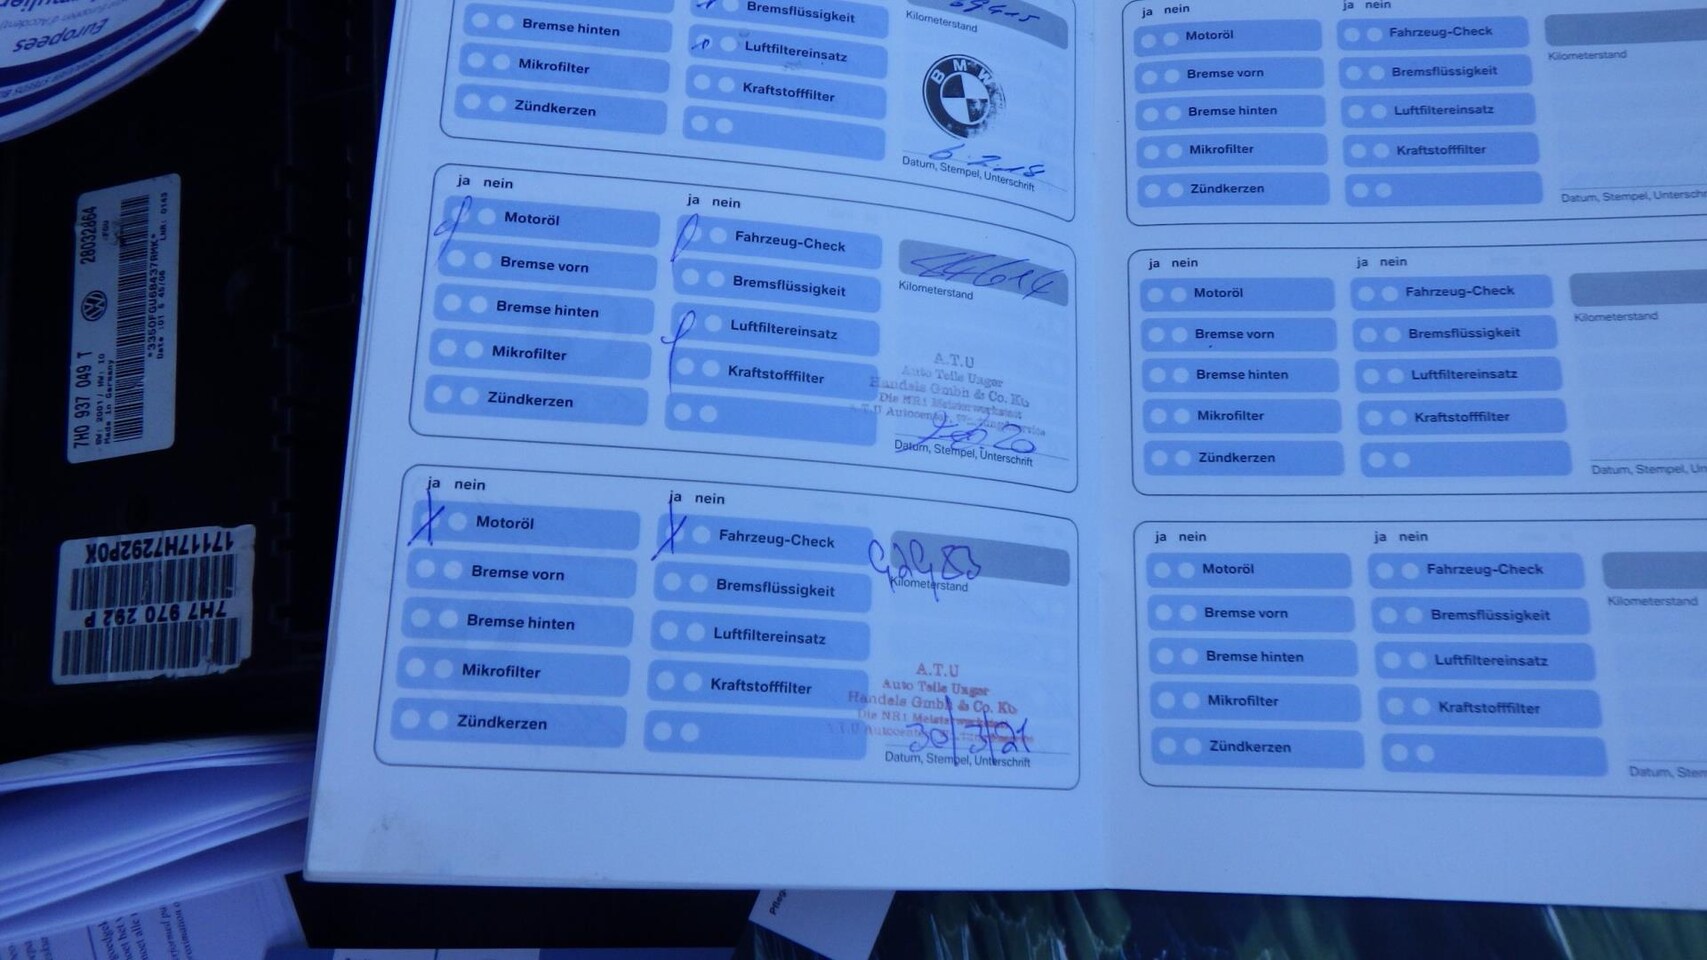 Europees
28032864
7H0 937 049 T
HW: 2001/ HW: 10
Made in Germany
*3350FGU6BA37RMK*
17117H7292P0X
7H7 970 292 P
Bremse hinten
Mikrofilter
Zündkerzen
Bremsflüssigkeit
Luftfiltereinsatz
Kraftstofffilter
Kilometerstand
BMW
6.2.18
Datum, Stempel, Unterschrift
ja nein
Motoröl
Bremse vorn
Bremse hinten
Mikrofilter
Zündkerzen
ja nein
Fahrzeug-Check
Bremsflüssigkeit
Luftfiltereinsatz
Kraftstofffilter
Kilometerstand
A.T.U
Auto Teile Unger
Handels Gmbh & Co. Kg
Die NR1 Meisterwerkstatt
Datum, Stempel, Unterschrift
ja nein
Motoröl
Bremse vorn
Bremse hinten
Mikrofilter
Zündkerzen
ja nein
Fahrzeug-Check
Bremsflüssigkeit
Luftfiltereinsatz
Kraftstofffilter
Kilometerstand
A.T.U
Auto Teile Unger
Handels Gmbh & Co. Kg
Die NR1 Meisterwerkstatt
30/3/21
Datum, Stempel, Unterschrift
ja nein
Motoröl
Bremse vorn
Bremse hinten
Mikrofilter
Zündkerzen
ja nein
Fahrzeug-Check
Bremsflüssigkeit
Luftfiltereinsatz
Kraftstofffilter
Kilometerstand
Datum, Stempel, Unterschr
ja nein
Motoröl
Bremse vorn
Bremse hinten
Mikrofilter
Zündkerzen
ja nein
Fahrzeug-Check
Bremsflüssigkeit
Luftfiltereinsatz
Kraftstofffilter
Kilometerstand
Datum, Stempel, Un
ja nein
Motoröl
Bremse vorn
Bremse hinten
Mikrofilter
Zündkerzen
ja nein
Fahrzeug-Check
Bremsflüssigkeit
Luftfiltereinsatz
Kraftstofffilter
Kilometerstand
Datum, Stem